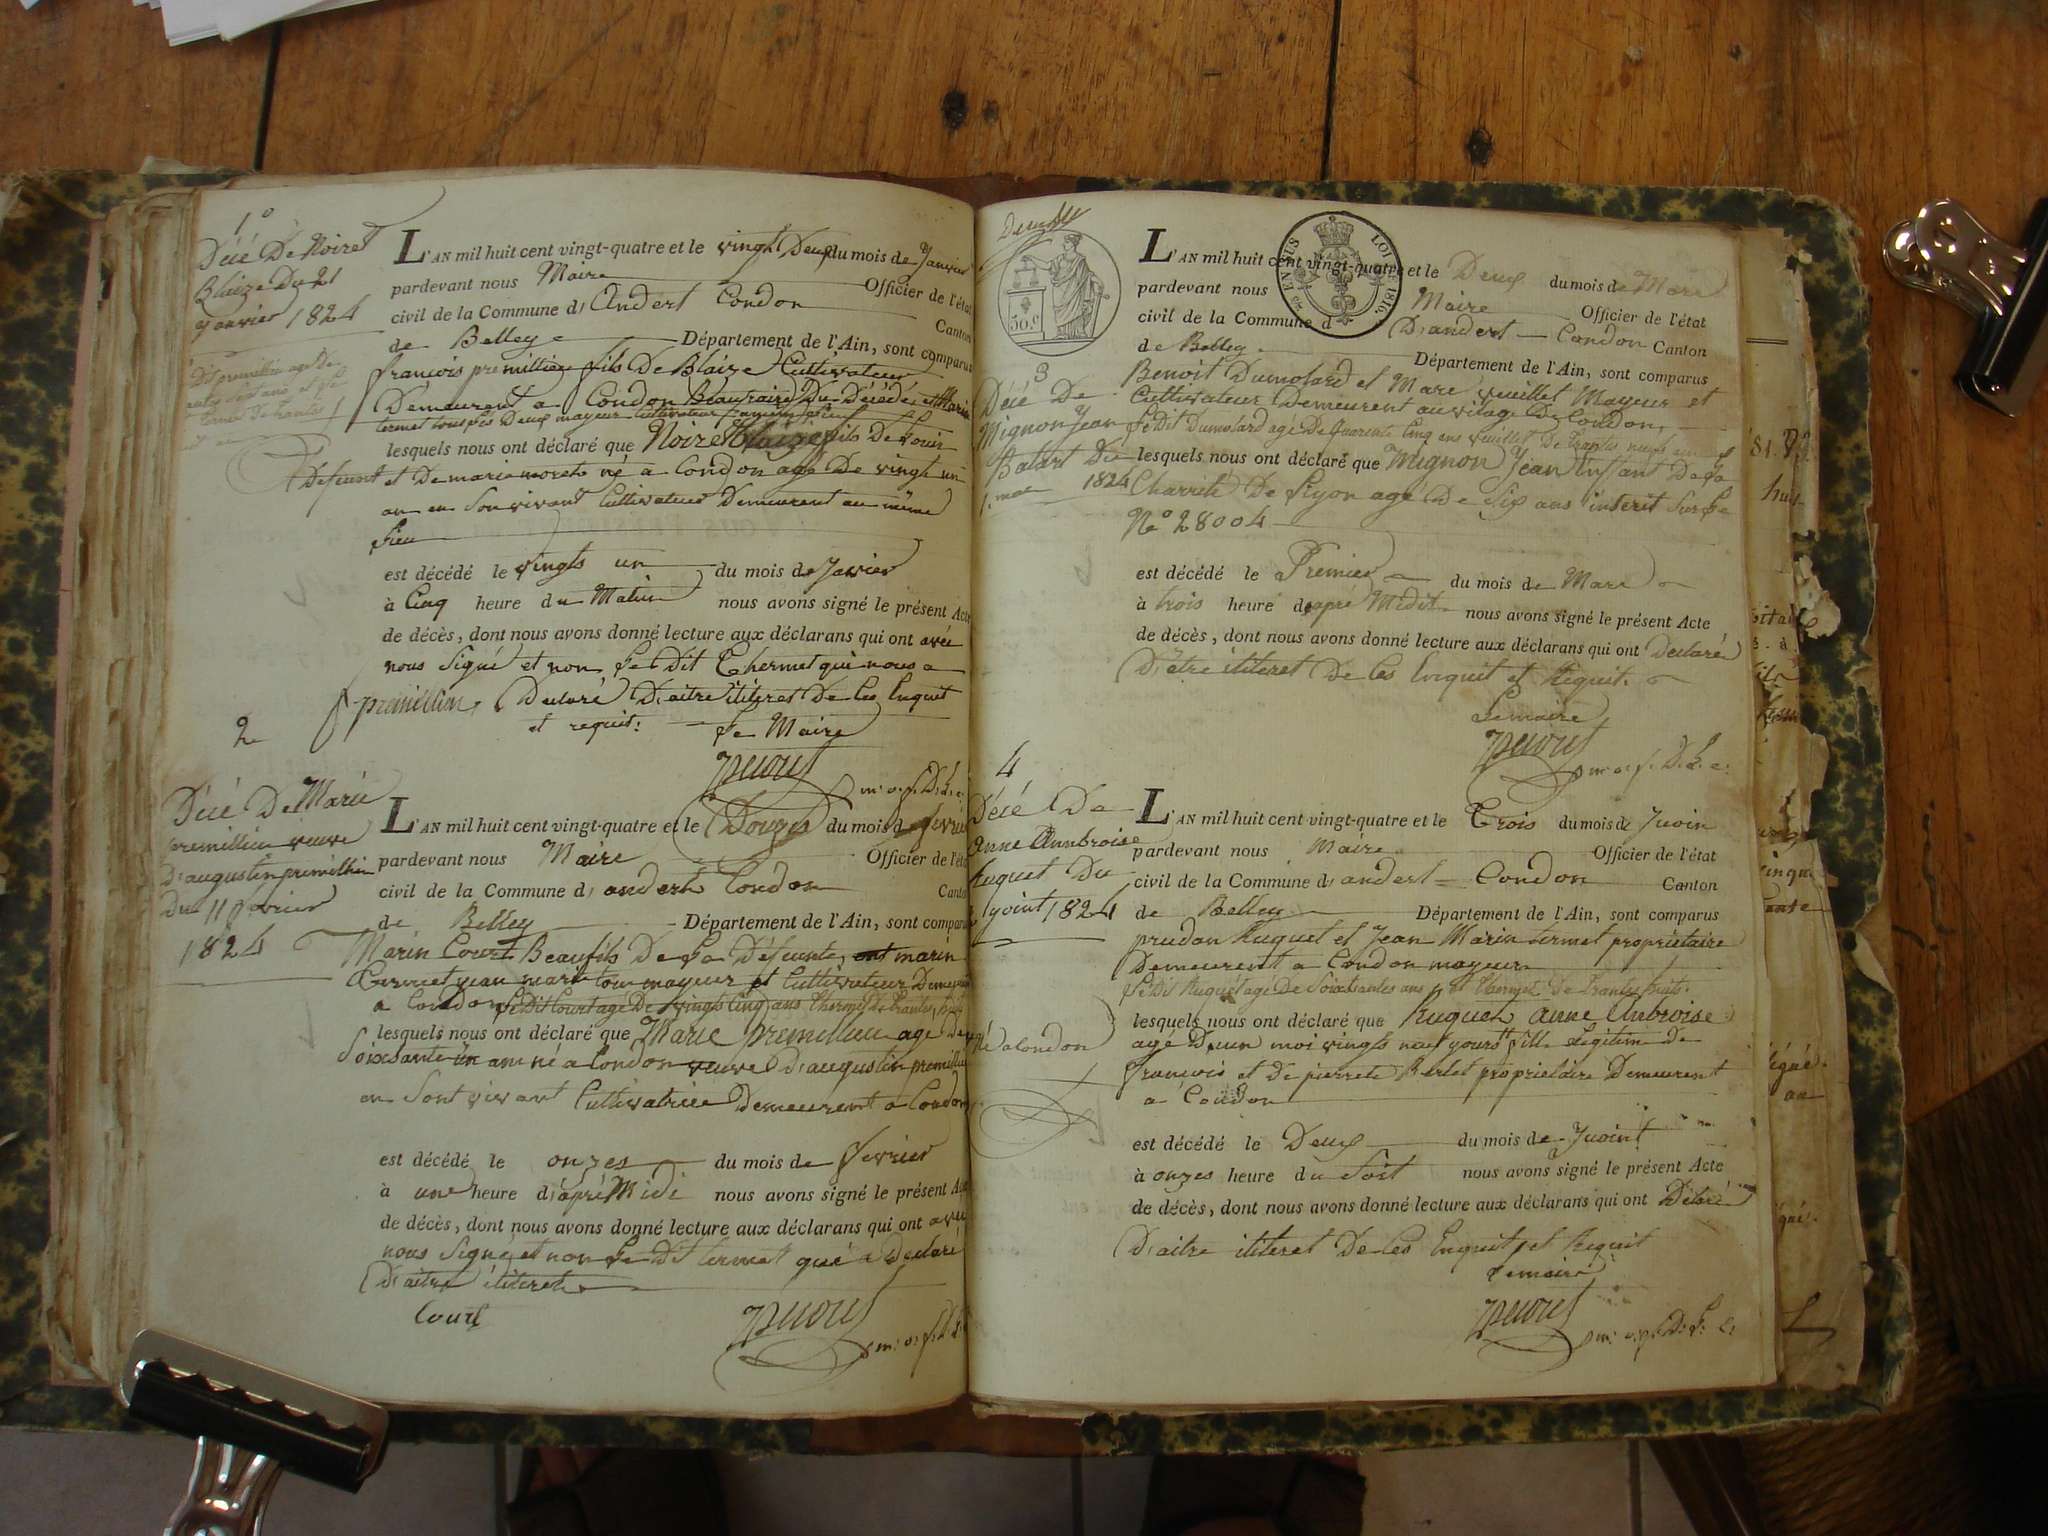 1º
Décé De Noiret
Blaize Du 21
Janvier 1824
L'AN mil huit cent vingt-quatre et le vingt Deux du mois de Janvier
pardevant nous Maire Officier de l'état
civil de la Commune d'Andert Condon Canton
de Belley Département de l'Ain, sont comparus
françois premillieu fils De Blaize Cultivateur
Demeurent a Condon Beaufraire Du Décédé et Marin
termet tous les Deux mayeur Cultivateur
lesquels nous ont déclaré que Noiret Blaize fils De Louis
Defeunt et De marie moret né a Condon age De vingt un
an en Son vivant Cultivateur Demeurent au même
lieu
est décédé le vingts un du mois de Janvier
à Cinq heure du Matin nous avons signé le présent Acte
de décès, dont nous avons donné lecture aux déclarans qui ont avéc
nous Signé et non le Dit Thermet qui nous a
f premillieu Declaré D'aitre iliteret De Ces Enquit
et requit. Le Maire
m. o. f. D. L. e.
2
Décé De Marie
premillieu veuve
D'augustin premillieu
Du 11 fevrier
1824
L'AN mil huit cent vingt-quatre et le Douzes du mois de fevrier
pardevant nous Maire Officier de l'éta
civil de la Commune d'andert Condon Canto
de Belley Département de l'Ain, sont compar
Marin Court Beaufils De La Defeunte, marin
Termet jean marie tous mayeur et Cultivateur Demeurent
a Condon Le Dit Court age De vingts Cinq ans Thermet De trantes huit
lesquels nous ont déclaré que Marie premillieu age De
Soixsante un an né a Condon veuve D'augustin premillieu
en Sont vivant Cultivatrice Demeurent a Condon
est décédé le onzes du mois de fevrier
à une heure d'apré Midi nous avons signé le présent Ac
de décès, dont nous avons donné lecture aux déclarans qui ont avec
nous Signé et non Le Dit termet qui a Declaré
D'aitre iliteret
Court
m. o. f. D. L.
Deuxsse
50 C
LOI DE 1816.
3
Décé De
Mignon Jean
Batart Du
1. mar 1824
L'AN mil huit cent vingt-quatre et le Deux du mois de Mars
pardevant nous Maire Officier de l'état
civil de la Commune d D'andert Condon Canton
de Belley Département de l'Ain, sont comparus
Benoit Dumolard et Marc veuillet Mayeur et
Cultivateur Demeurent au vilage De Condon,
Le Dit Dumolard agé De quarente Cinq ans veuillet De trantes neuf ans
lesquels nous ont déclaré que Mignon Jean Enfant De La
Charrité De Liyon age De Six ans inscrit Sur Le
Nº 28004
est décédé le Premier du mois de Mars
à trois heure d'apré Midit nous avons signé le présent Acte
de décès, dont nous avons donné lecture aux déclarans qui ont Declaré
D'être iliteret De Ces Enquit et Requit.
Lemaire
m. o. f. D. L. e.
4
Décé De
Anne Annbroise
huguet Du
Juoint 1824
L'AN mil huit cent vingt-quatre et le Trois du mois de Juoin
pardevant nous Maire Officier de l'état
civil de la Commune d'andert Condon Canton
de Belley Département de l'Ain, sont comparus
prudan huguet et Jean Marin termet propriétaire
Demeurent a Condon mayeur
Le Dit huguet agé De Soixsantes ans et Thermet De trantes huits.
lesquels nous ont déclaré que huguet anne Anbroise
age D'un moi vingts neuf yours fille Légitime De
françois et De pierrete Berlet propriétaire Demeurent
a Condon
Né a Condon
est décédé le Deux du mois de Juoint
à onzes heure du Soit nous avons signé le présent Acte
de décès, dont nous avons donné lecture aux déclarans qui ont Délaré
D'aitre iliteret De Ces Enquit et Requit
Lemaire
m. o. f. D. L. e.